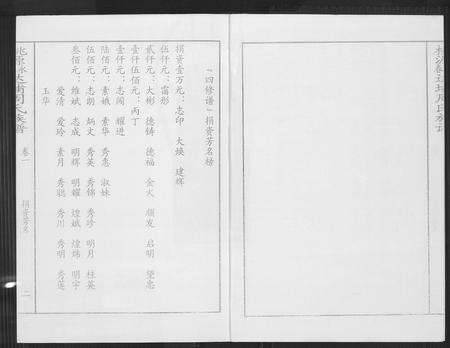 「四修谱」捐资芳名榜
捐资壹万元：志印 大焕 建辉
伍仟元：富彤
贰仟元：大彬 德铸 德福 金火 顺发 启明 望忠
壹仟伍佰元：丙丁
壹仟元：志闯 耀进
陆佰元：素娥 素华 秀惠 淑妹
伍佰元：志朗 炳文 秀英 秀锦 秀珍 明月 桂英
叁佰元：维斌 志成 明辉 明耀 煌斌 煌炜 明宇
爱清 爱玲 素月 秀聪 秀川 秀明 秀莲
玉华
族谱
卷一
捐资芳名
二